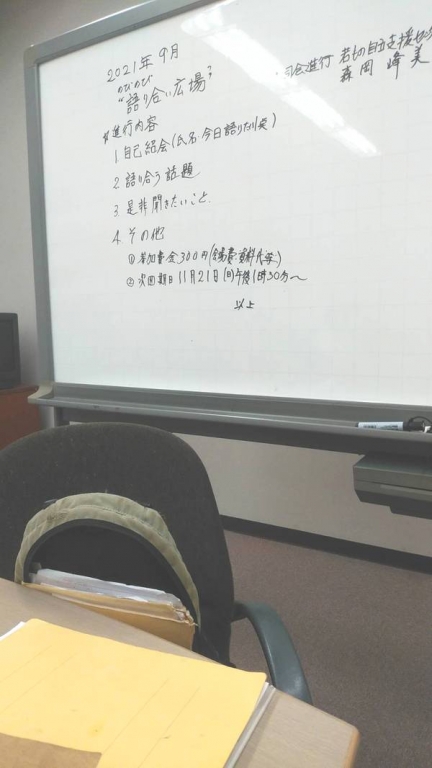 2021年9月
のびのび
"語り合い広場"
司会進行 若もの自立支援センター
森岡峰美
#進行内容
1. 自己紹介(氏名、今日語りたい矣)
2. 語り合う話題
3. 是非聞きたいこと.
4. その他
① 参加費金300円(会場費、資料代等)
② 次回期日 11月21日(日)午後1時30分〜
以上